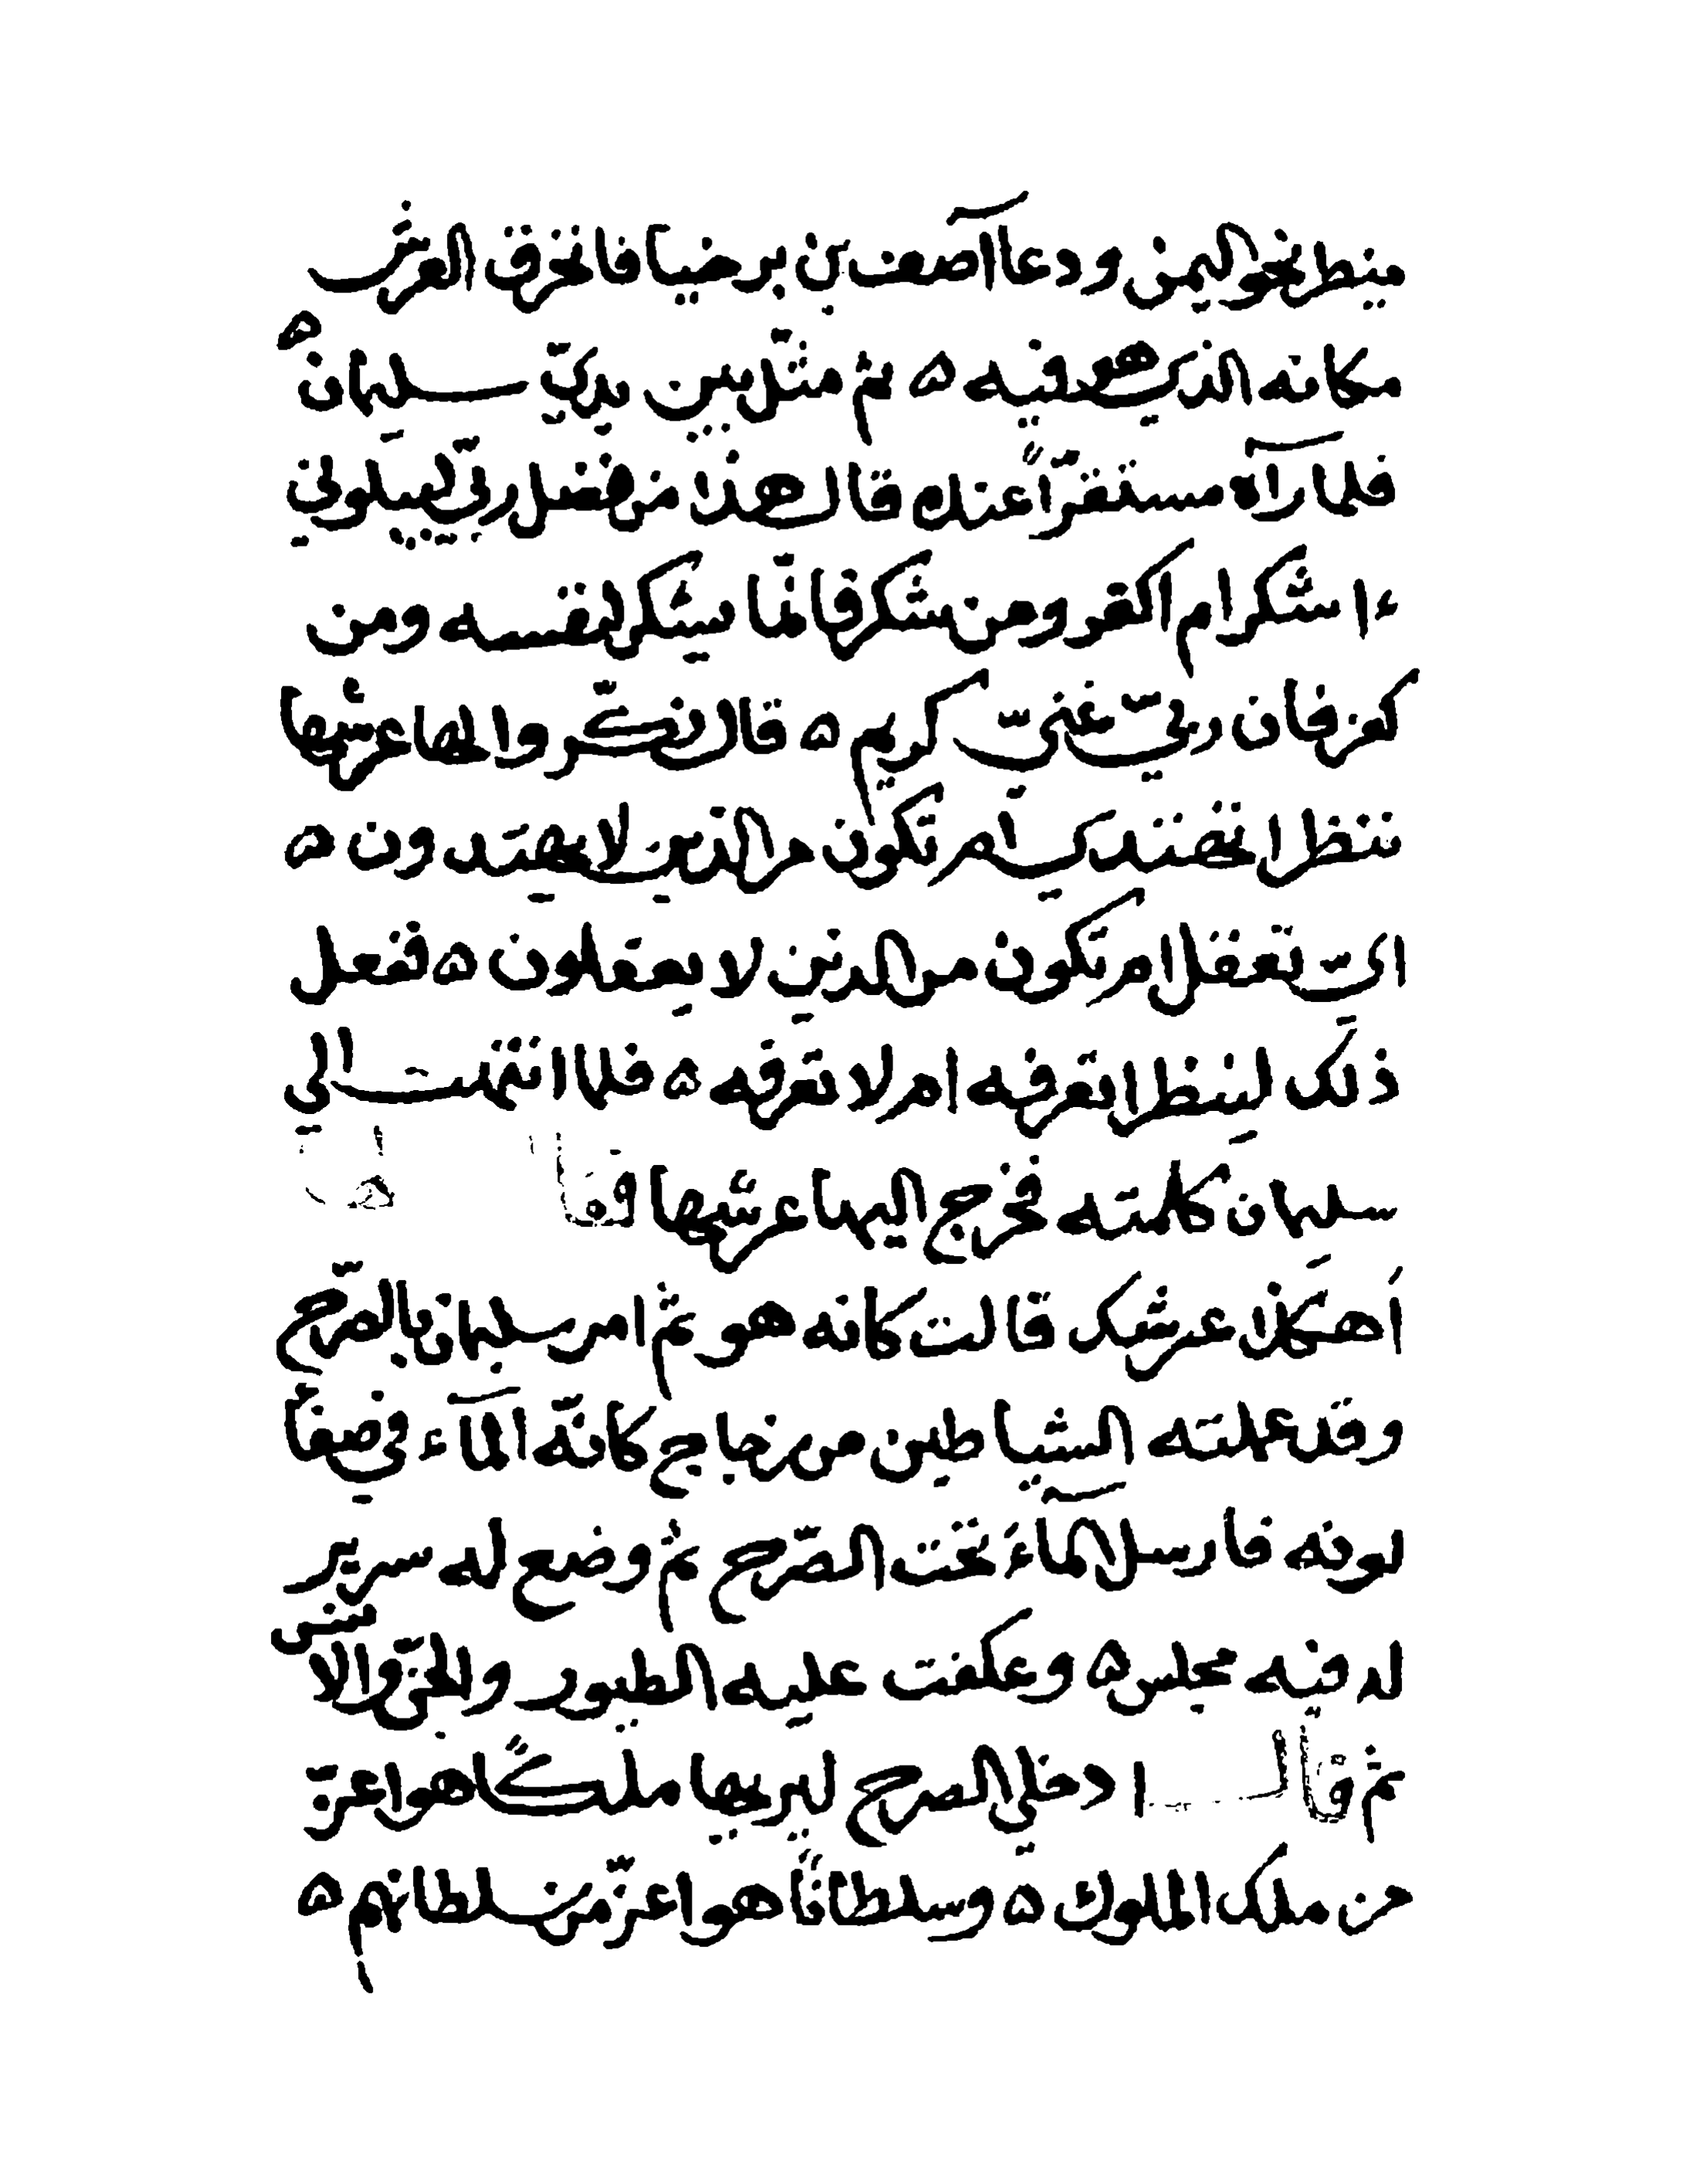 ينظر نحو اليمن ودعا آصف بن برخيا فانخرق العرش
مكانه الذي هو فيه ه ثم مثل بين يديّ سليمان ه
فلما رآه مستقرّاً عنده قال هذا من فضل ربّي ليبلوني
ءاشكر ام اكفر ومن شكر فانّما يشكر لنفسه ومن
كفر فان ربيّ غنيّ كريم ه قال نكّروا لها عرشها
ننظر اتهتدي ام تكون من الذين لا يهتدون ه
اي تعقل ام تكون من الذين لا يعقلون ه ففعل
ذلك لينظر اتعرفه ام لا تعرفه ه فلما انتهت الي
سليمان كلمته فخرج اليها عرشها فقال لها
أهكذا عرشك قالت كانه هو ثم امر سليمان بالصّرح
وقد عملته الشياطين من زجاج كانّه المآء في صفآ
لونه فارسل المآءَ تحت الصّرح ثم وضع له سرير
له فيه مجلس ه وعكفت عليه الطيور والجنّ والانس
ثم قال ادخلي الصرح ليريها ملكاً هو اعزّ
من ملك الملوك ه وسلطاناً هو اعزّ من سلطانهم ه